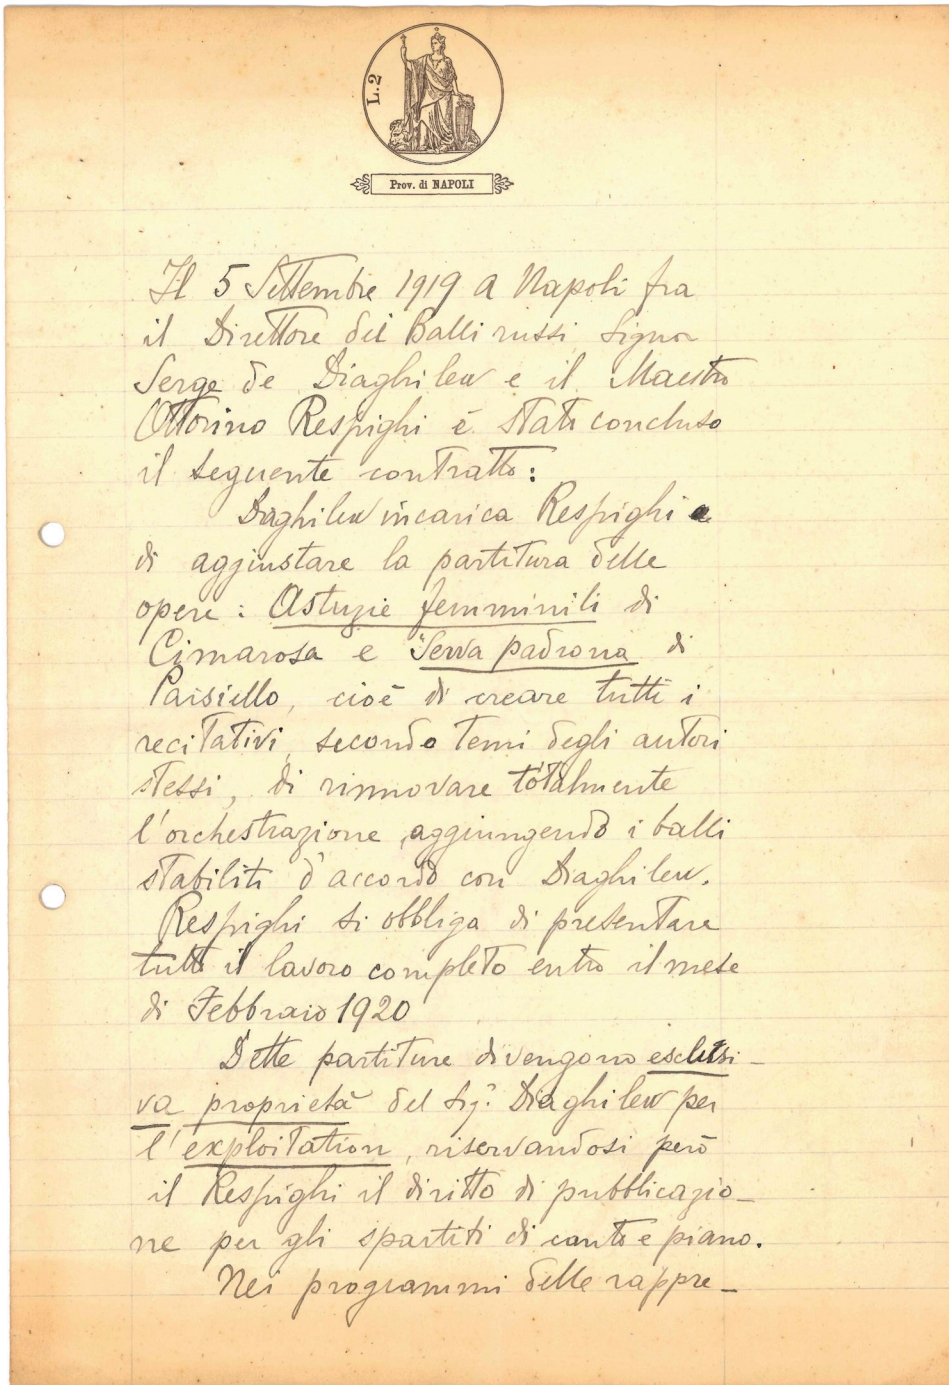 L.2
Prov. di NAPOLI
Il 5 Settembre 1919 a Napoli fra
il Direttore dei Balli russi Signor
Serge de Diaghilew e il Maestro
Ottorino Respighi è stato concluso
il seguente contratto:
Diaghilew incarica Respighi
di aggiustare la partitura delle
opere: Astuzie femminili di
Cimarosa e Serva padrona di
Paisiello, cioè di creare tutti i
recitativi, secondo temi degli autori
stessi, di rinnovare totalmente
l'orchestrazione aggiungendo i balli
stabiliti d'accordo con Diaghilew.
Respighi si obbliga di presentare
tutto il lavoro completo entro il mese
di Febbraio 1920
Dette partiture divengono esclusi-
va proprietà del Sig. Diaghilew per
l'exploitation, riservandosi però
il Respighi il diritto di pubblicazio-
ne per gli spartiti di canto e piano.
Nei programmi delle rappre-